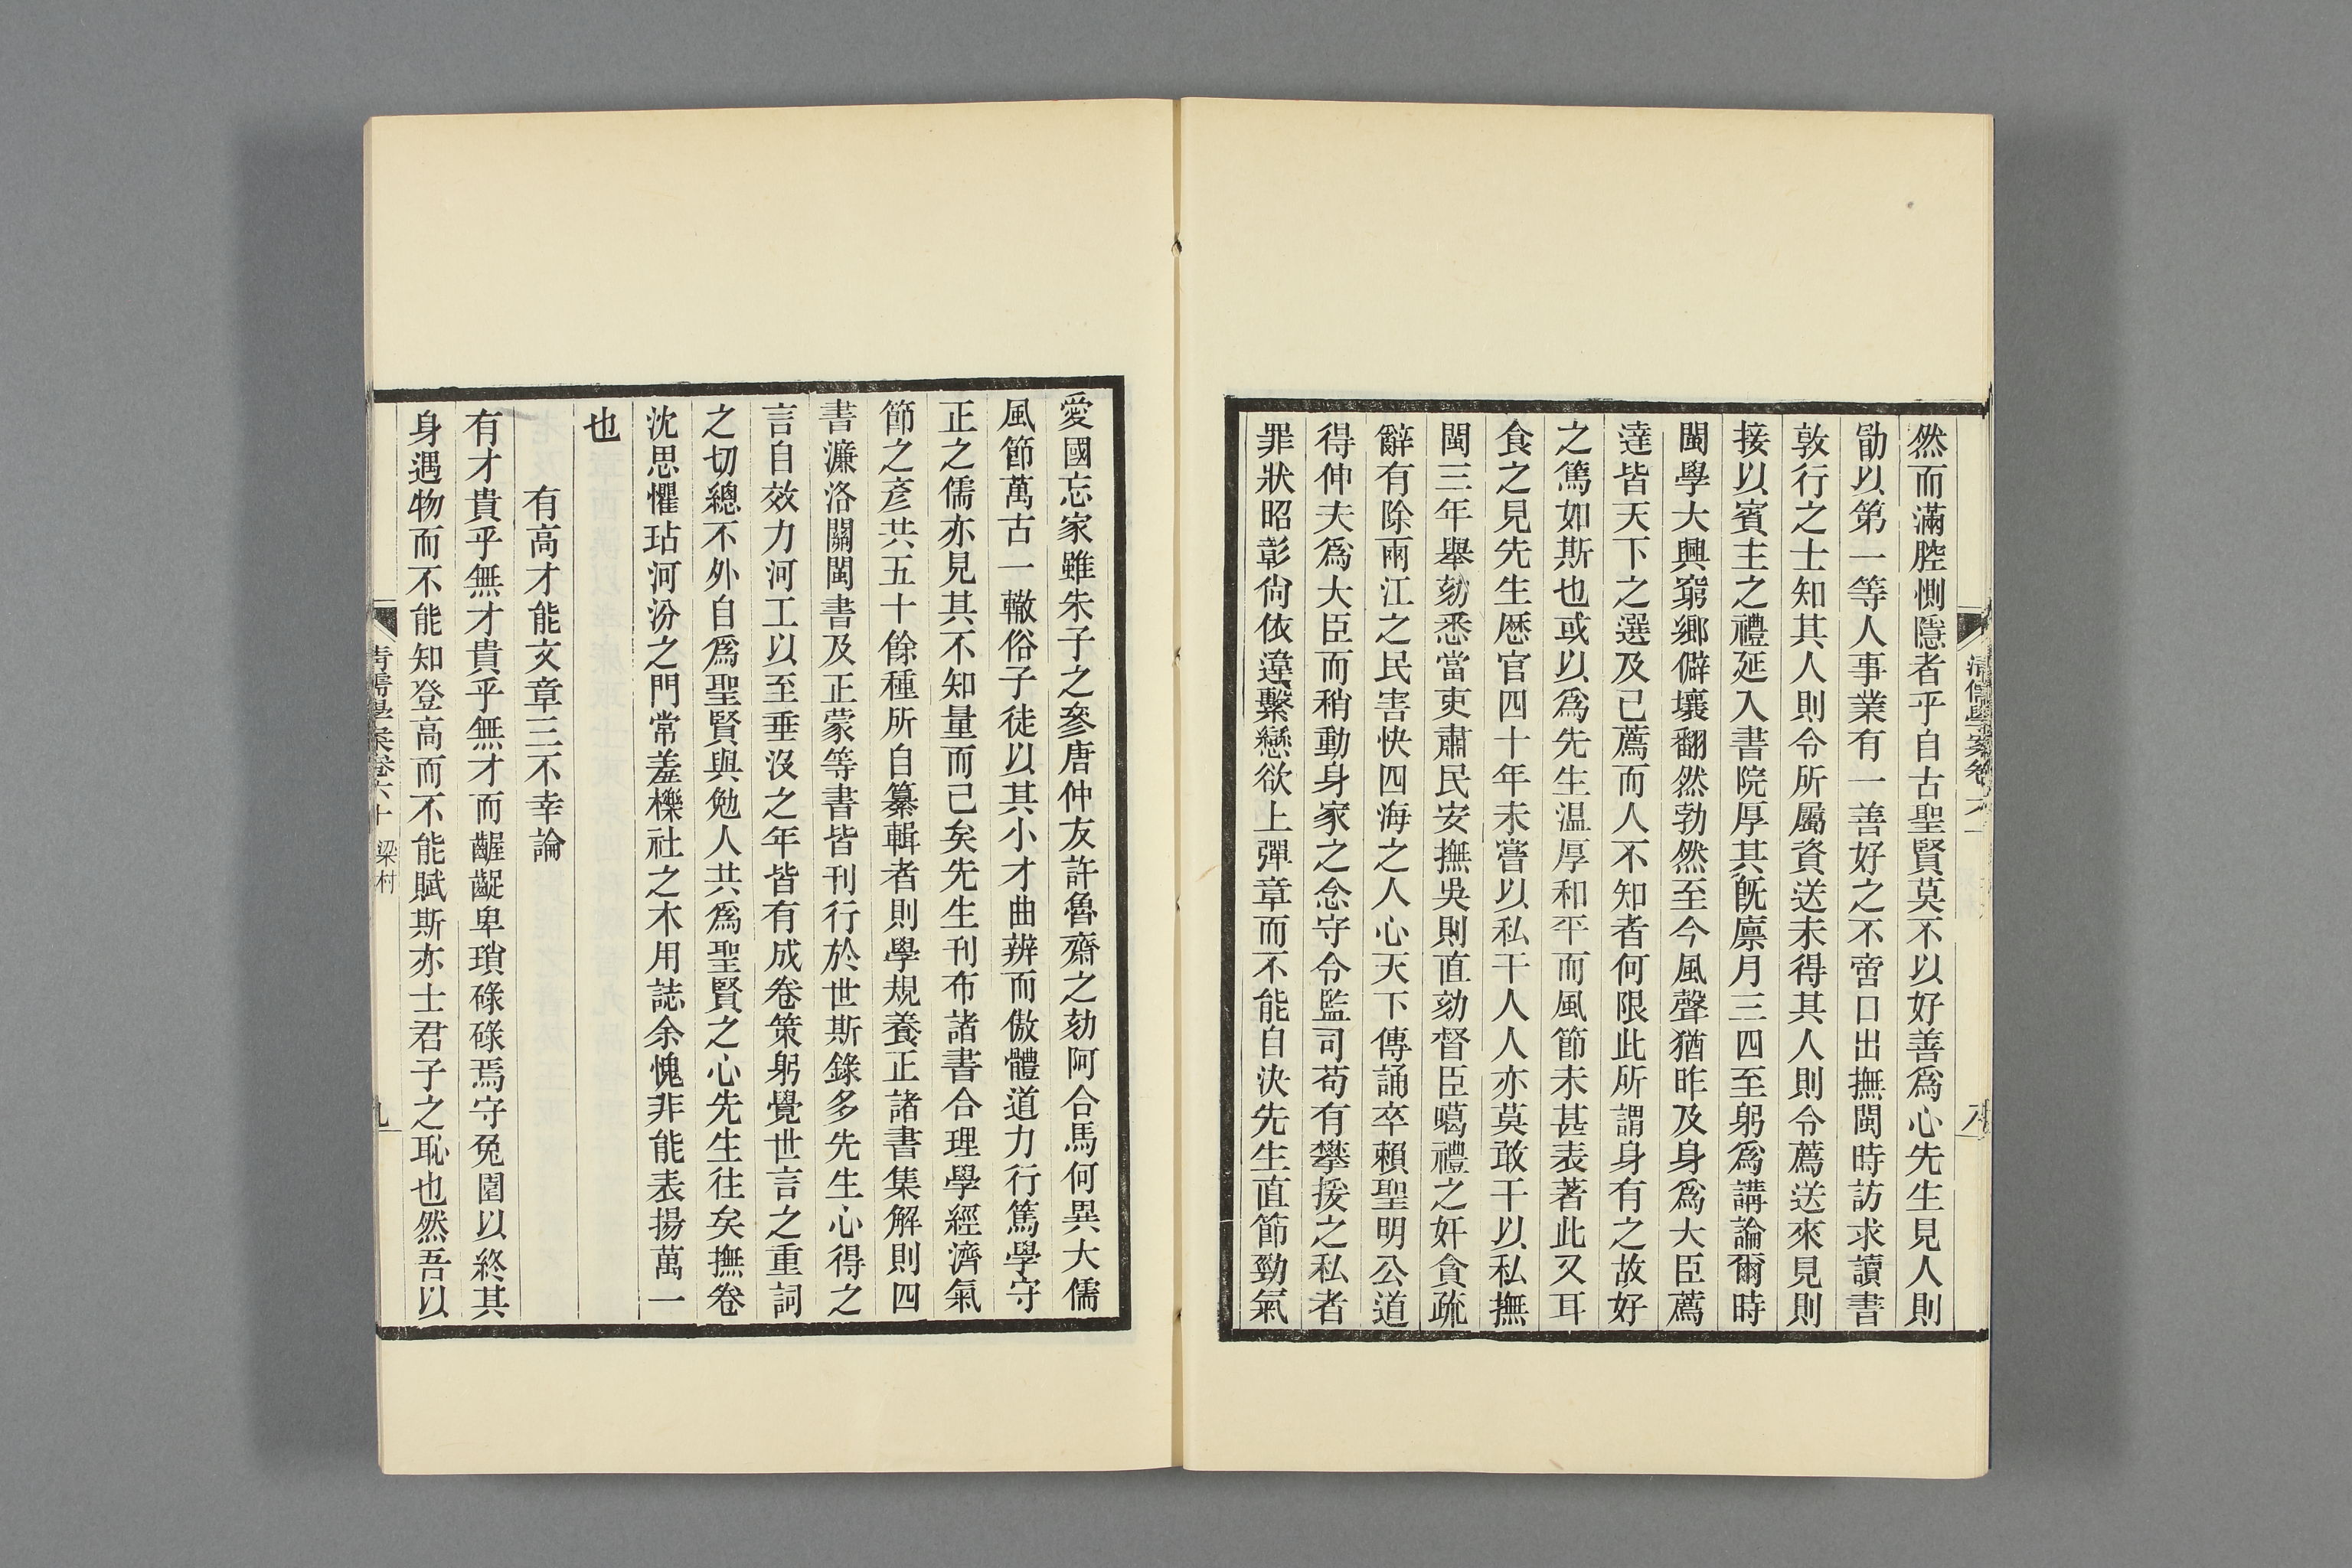 然而滿腔惻隱者乎自古聖賢莫不以好善爲心先生見人則
勖以第一等人事業有一善好之不啻口出撫閩時訪求讀書
敦行之士知其人則令所屬資送未得其人則令薦送來見則
接以賓主之禮延入書院厚其旣廪月三四至躬爲講論爾時
閩學大興窮鄉僻壤翻然勃然至今風聲猶昨及身爲大臣薦
達皆天下之選及已薦而人不知者何限此所謂身有之故好
之篤如斯也或以爲先生温厚和平而風節未甚表著此又耳
食之見先生歴官四十年未嘗以私干人人亦莫敢干以私撫
閩三年舉劾悉當吏肅民安撫吳則直劾督臣噶禮之奸貪疏
辭有除兩江之民害快四海之人心天下傳誦卒賴聖明公道
得伸夫爲大臣而稍動身家之念守令監司苟有攀援之私者
罪狀昭彰尙依違繫戀欲上彈章而不能自決先生直節勁氣
清儒學案卷六十
八
愛國忘家雖朱子之叅唐仲友許魯齋之劾阿合馬何異大儒
風節萬古一轍俗子徒以其小才曲辨而傲體道力行篤學守
正之儒亦見其不知量而已矣先生刊布諸書合理學經濟氣
節之彥共五十餘種所自纂輯者則學規養正諸書集解則四
書濂洛關閩書及正蒙等書皆刊行於世斯錄多先生心得之
言自效力河工以至垂沒之年皆有成卷策躬覺世言之重詞
之切總不外自爲聖賢與勉人共爲聖賢之心先生往矣撫卷
沈思懼玷河汾之門常羞櫟社之木用誌余愧非能表揚萬一
也
有高才能文章三不幸論
有才貴乎無才貴乎無才而齷齪卑瑣碌碌焉守兔園以終其
身遇物而不能知登高而不能賦斯亦士君子之恥也然吾以
清儒學案卷六十 梁村
九